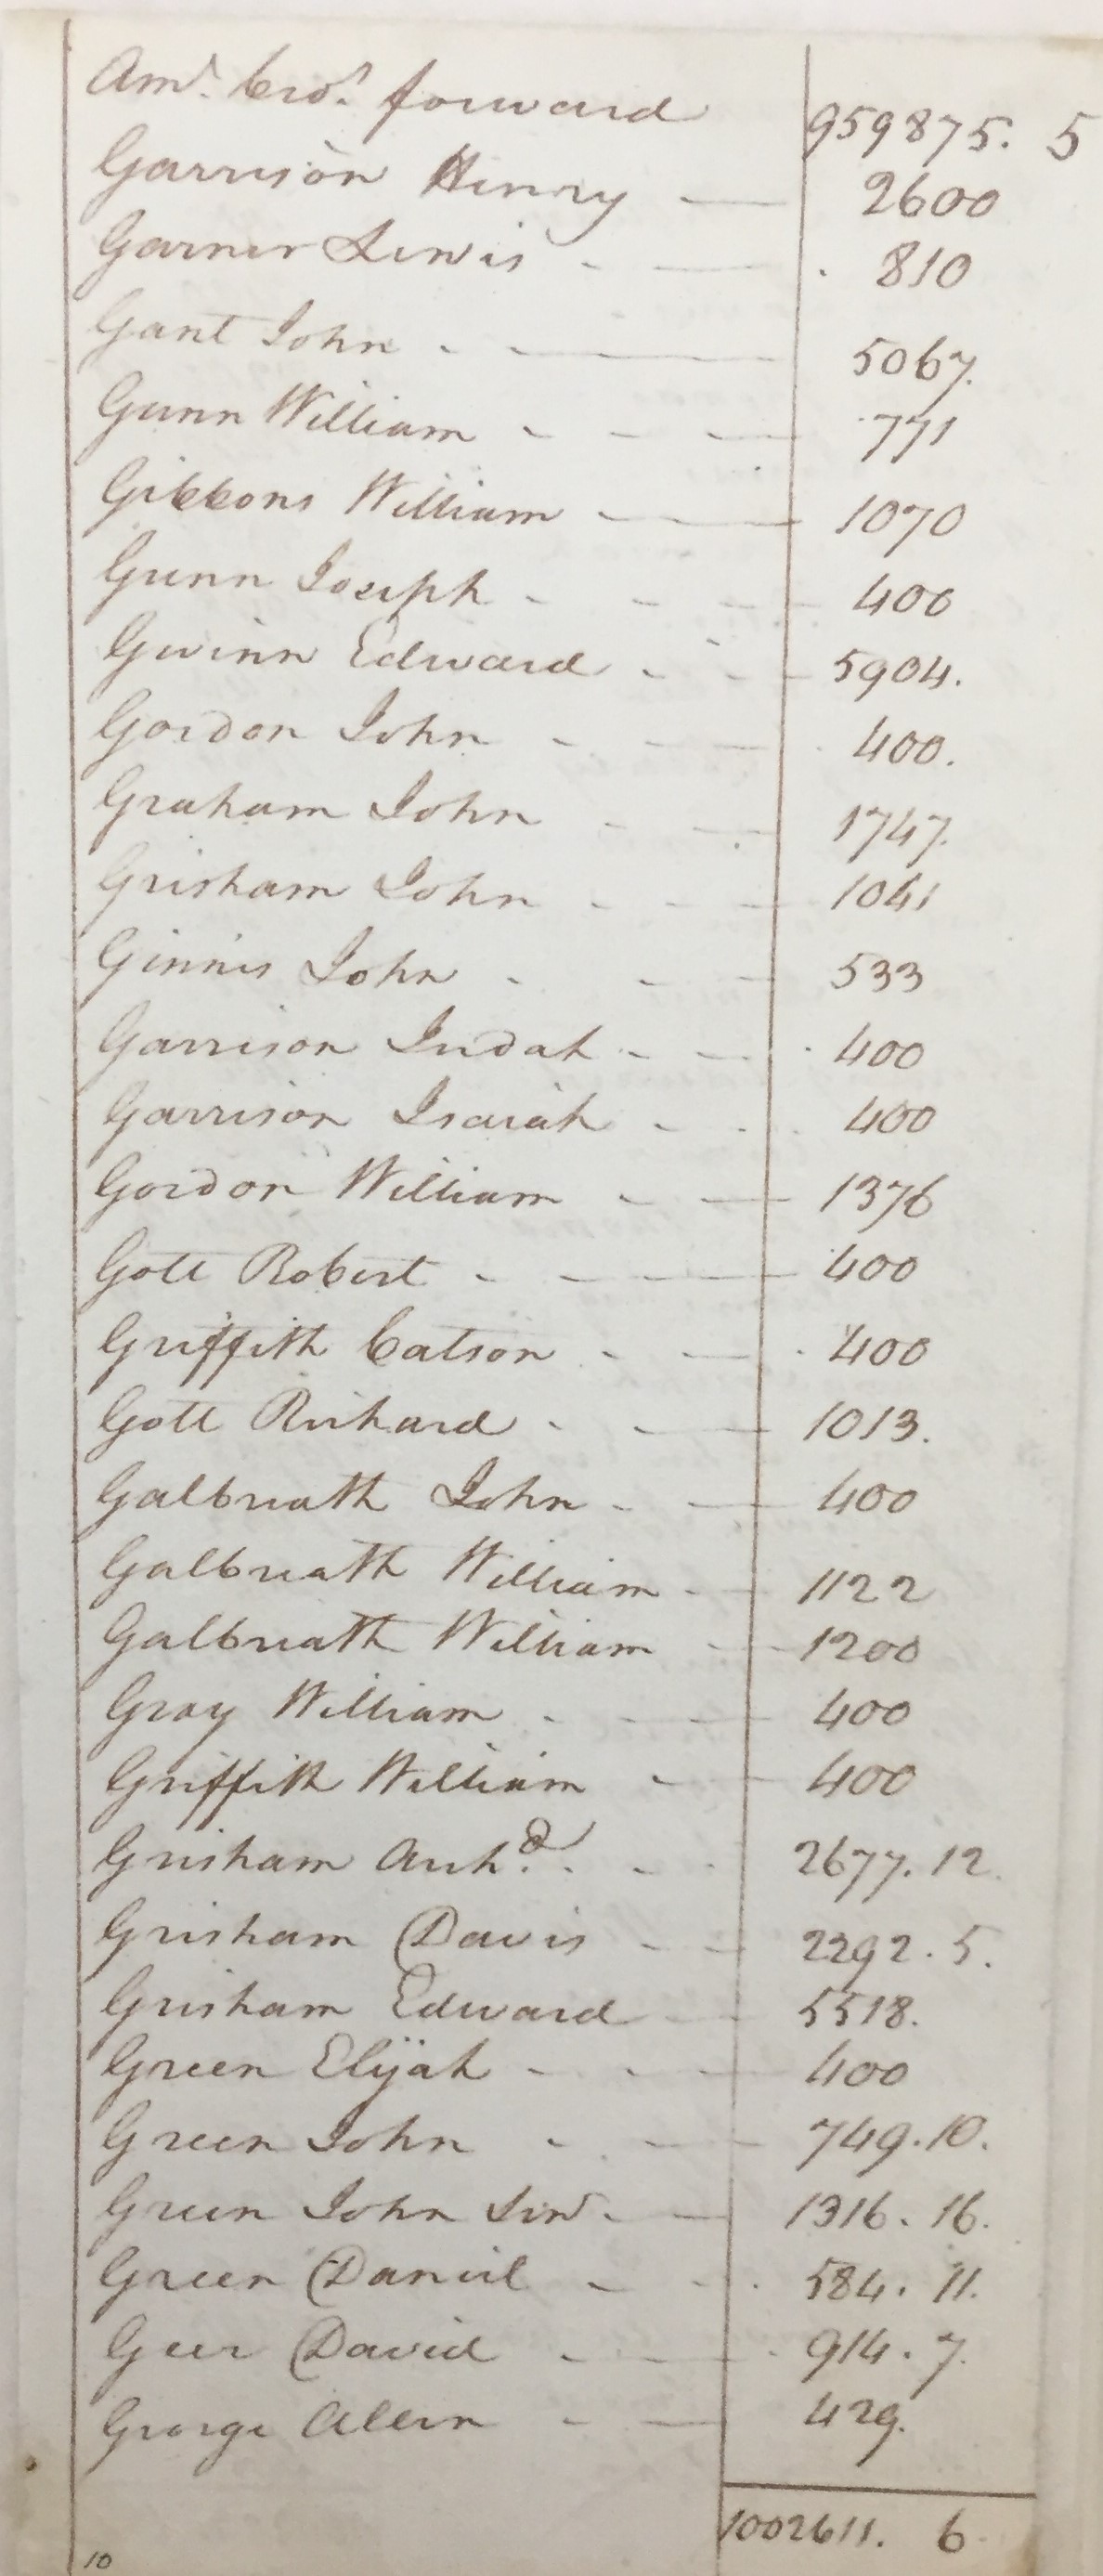 Amt. Bro.t forward 959875. 5
Garrison Henry 2600
Garner Lewis 810
Gant John 5067.
Gunn William 771
Gibbons William 1070
Gunn Joseph 400
Gwinn Edward 5904.
Gordon John 400.
Graham John 1747.
Grisham John 1041
Ginnis John 533
Garrison Judah 400
Garrison Isaiah 400
Gordon William 1376
Gott Robert 400
Griffith Catson 400
Gott Richard 1013.
Galbreath John 400
Galbreath William 1122
Galbreath William 1200
Gray William 400
Griffith William 400
Grisham Arch.d 2677. 12.
Grisham Davis 2292. 5.
Grisham Edward 5518.
Green Elijah 400
Green John 749. 10.
Green John Senr. 1316. 16.
Green Daniel 584. 11.
Geer David 914. 7.
George Allen 429.
1002611. 6
10